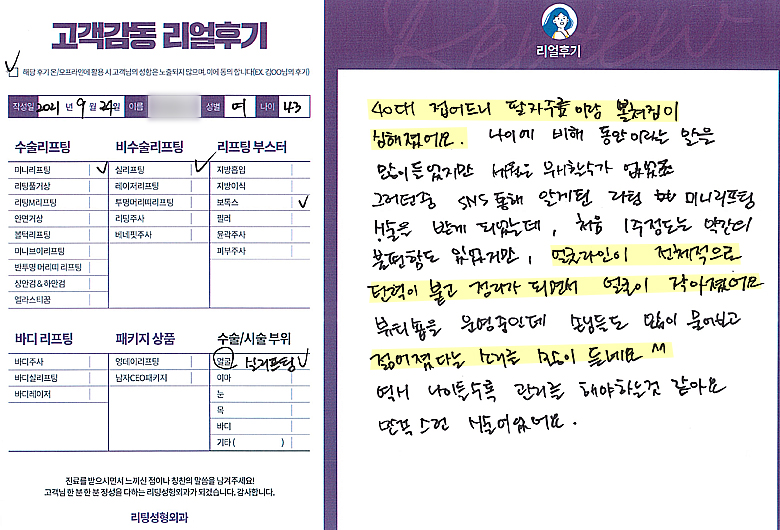 고객감동 리얼후기
해당 후기 온/오프라인에 활용 시 고객님의 성함은 노출되지 않으며, 이에 동의 합니다(EX. 김OO님의 후기)
작성일 2021 년 9 월 24일 이름 성별 여 나이 43
수술리프팅
미니리프팅
리팅풀기상
리팅M리프팅
안면기상
볼턱리프팅
미니브이리프팅
반투명 머리띠 리프팅
상안검&하안검
엘라스티꿈
비수술리프팅
실리프팅
레이저리프팅
투명머리띠리프팅
리팅주사
베네핏주사
리프팅 부스터
지방흡입
지방이식
보톡스
필러
윤곽주사
피부주사
바디 리프팅
바디주사
바디실리프팅
바디레이저
패키지 상품
엉데이리프팅
남자CEO패키지
수술/시술 부위
얼굴 실리프팅
이마
눈
목
바디
기타 ( )
진료를 받으시면서 느끼신 점이나 칭찬의 말씀을 남겨주세요!
고객님 한 분 한 분 정성을 다하는 리팅성형외과가 되겠습니다. 감사합니다.
리팅성형외과
Review
리얼후기
40대 접어드니 팔자주름이랑 볼쳐짐이
심해졌어요. 나이에 비해 동안이라는 말을
많이 듣었지만 세월은 무시할수가 없었죠
그러던중 SNS 통해 알게된 리팅 미니리프팅
시술을 받게 되었는데, 처음 1주정도는 약간의
불편함도 있었지만, 얼굴라인이 전체적으로
탄력이 붙고 정리가 되면서 얼굴이 작아졌어요
뷰티숍을 운영중인데 손님들도 많이 물어보고
젊어졌다는 소리를 많이 듣네요 ^^
역시 나이들수록 관리를 해야하는것 같아요
만족스런 시술이었어요.